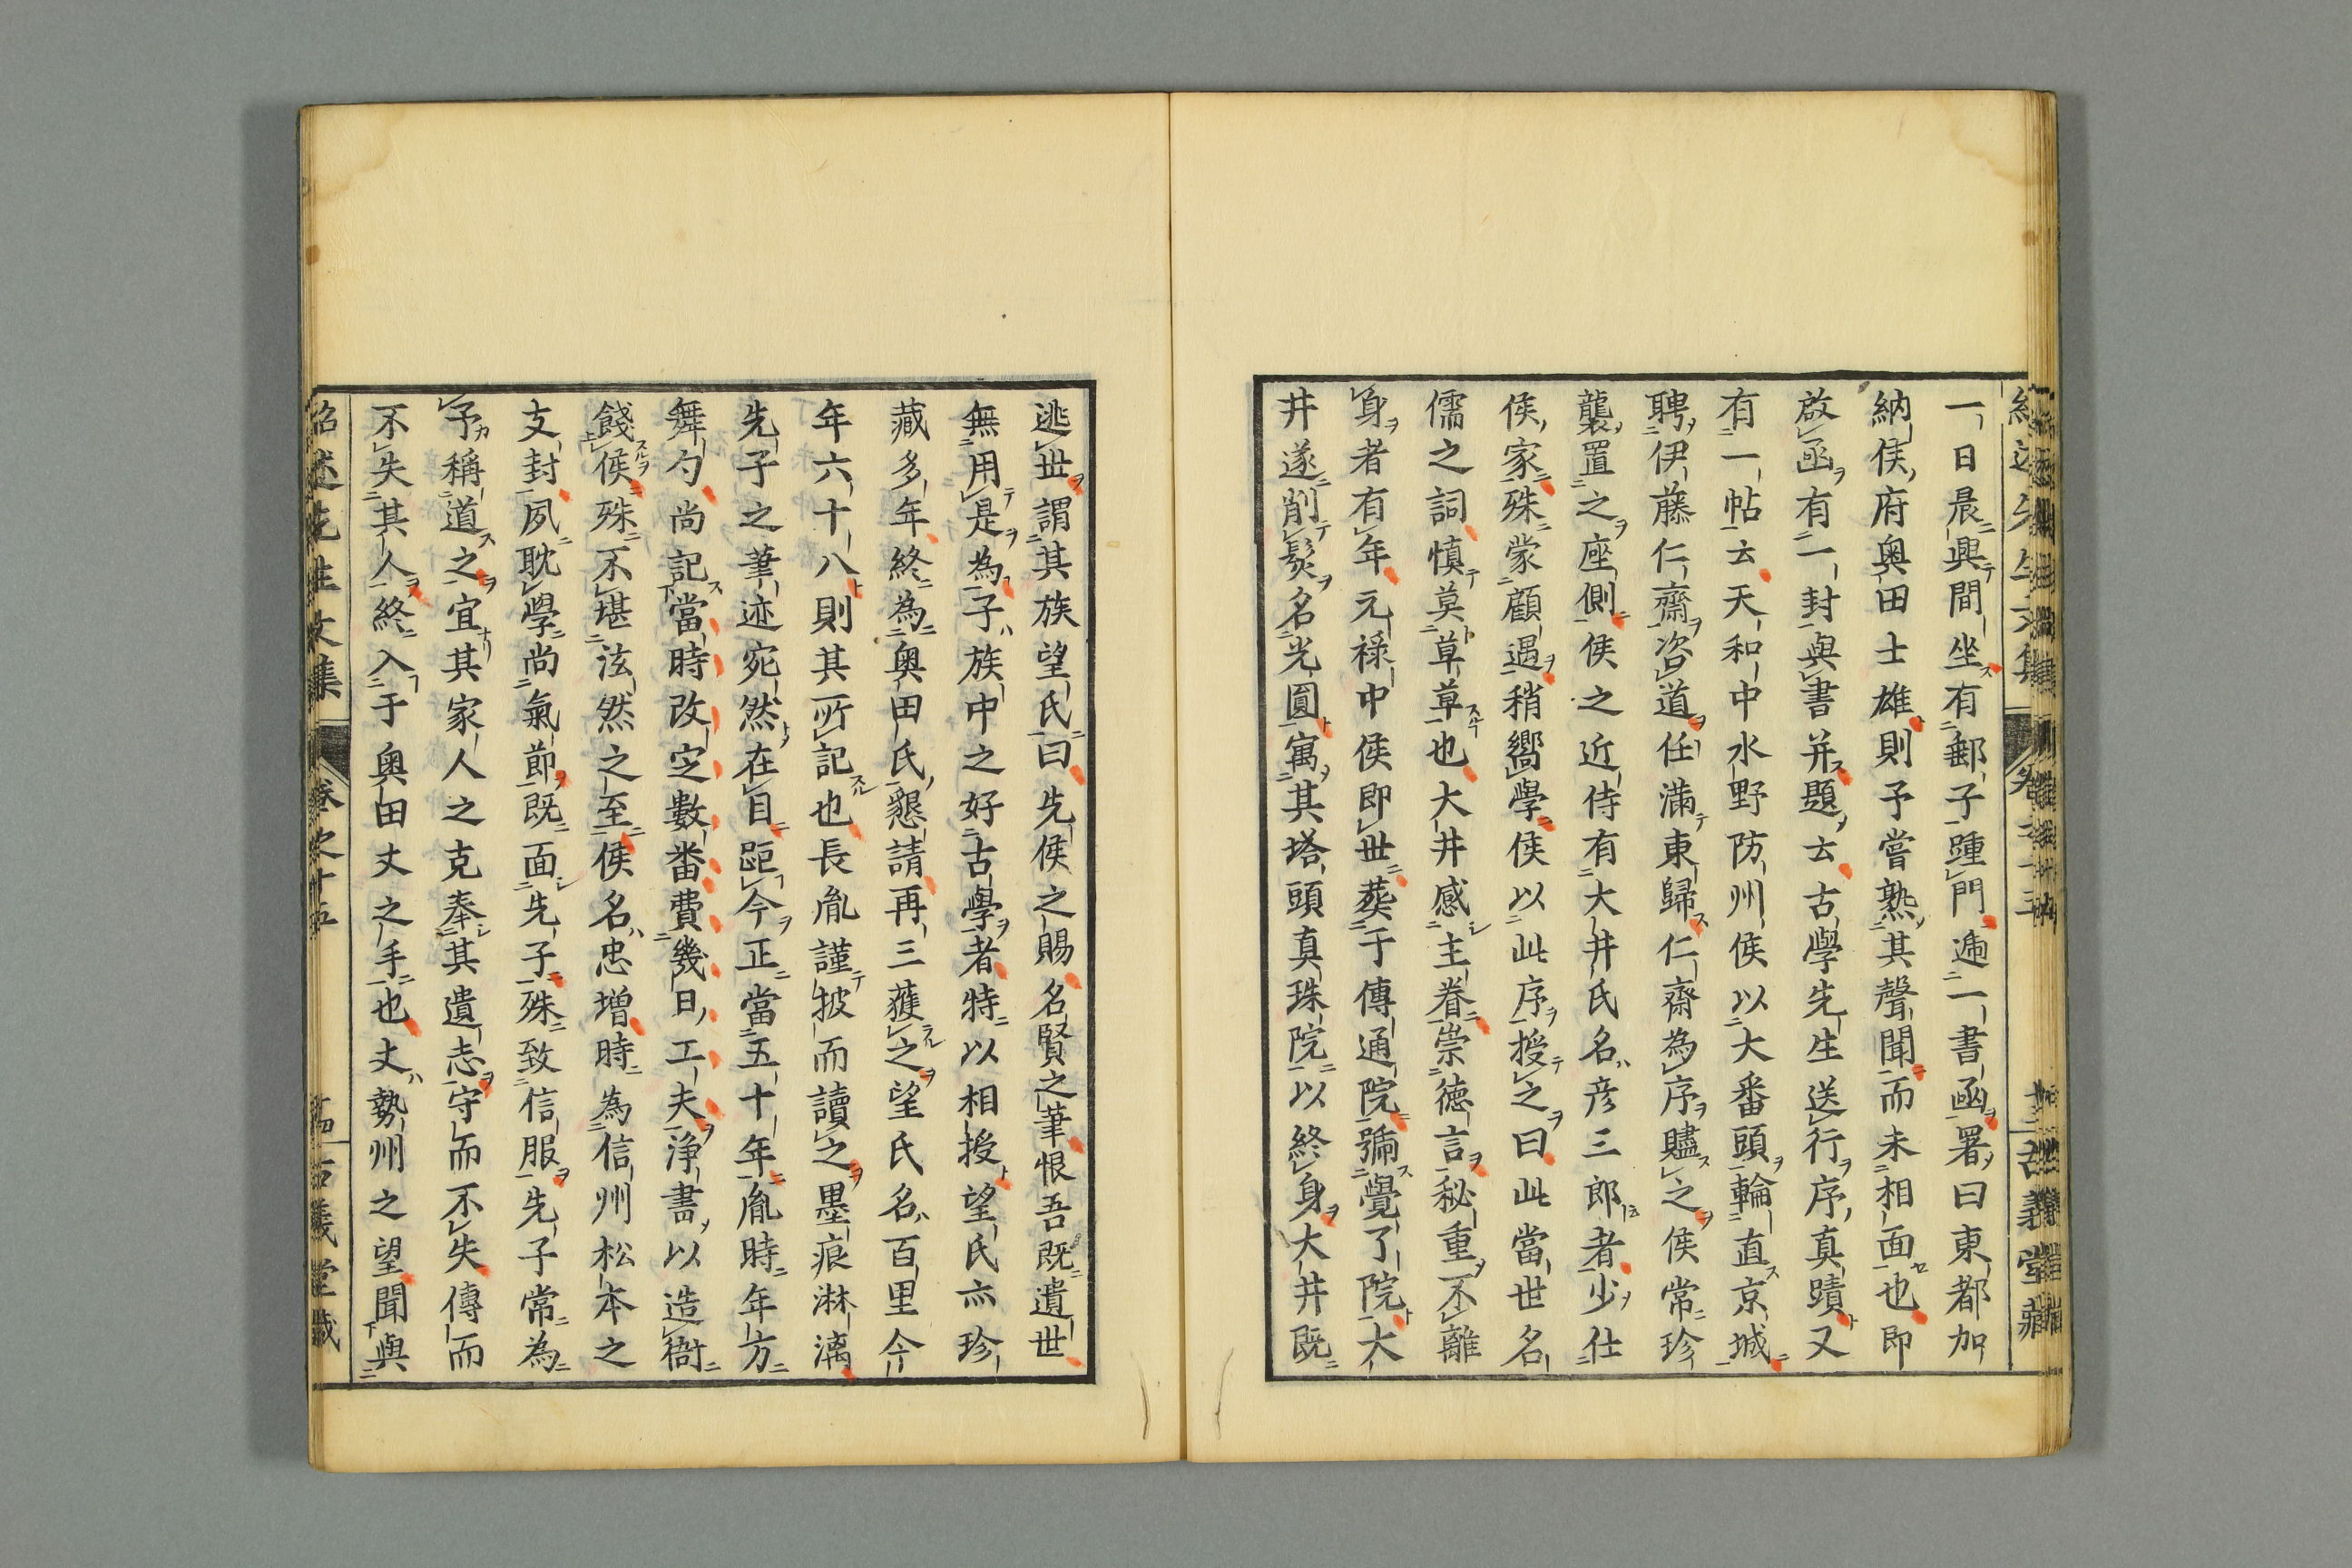 一日晨興間坐有郵子踵門逓一書函署曰東都加
納侯府奥田士雄則予嘗熟其聲聞而未相面也即
啟函有一封與書并題云古學先生送行序真蹟又
有一帖云天和中水野防州侯以大番頭輪直京城
聘伊藤仁齋咨道任滿東歸仁齋為序贐之侯常珍
襲置之座側侯之近侍有大井氏名彦三郎者少仕
侯家殊蒙顧遇稍嚮學侯以此序授之曰此當世名
儒之詞慎莫草草也大井感主眷崇徳言秘重不離
身者有年元禄中侯即世葬于傳通院號覺了院大
井遂削髮名光圓寓其塔頭真珠院以終身大井既
逃世謂其族望氏曰先侯之賜名賢之筆恨吾既遺世
無用是為子族中之好古學者特以相授望氏亦珍
藏多年終為奥田氏懇請再三獲之望氏名百里今
年六十八則其所記也長胤謹披而讀之墨痕淋漓
先子之筆迹宛然在目距今正當五十年胤時年方
舞勺尚記當時改定數番費幾日工夫浄書以造衙
餞侯殊不堪泫然之至侯名忠増時為信州松本之
支封夙耽學尚氣節既面先子殊致信服先子常為
予稱道之宜其家人之克奉其遺志守而不失傳而
不失其人終入于奥田丈之手也丈勢州之望聞與
紹述先生文集 卷之十五 古義堂藏